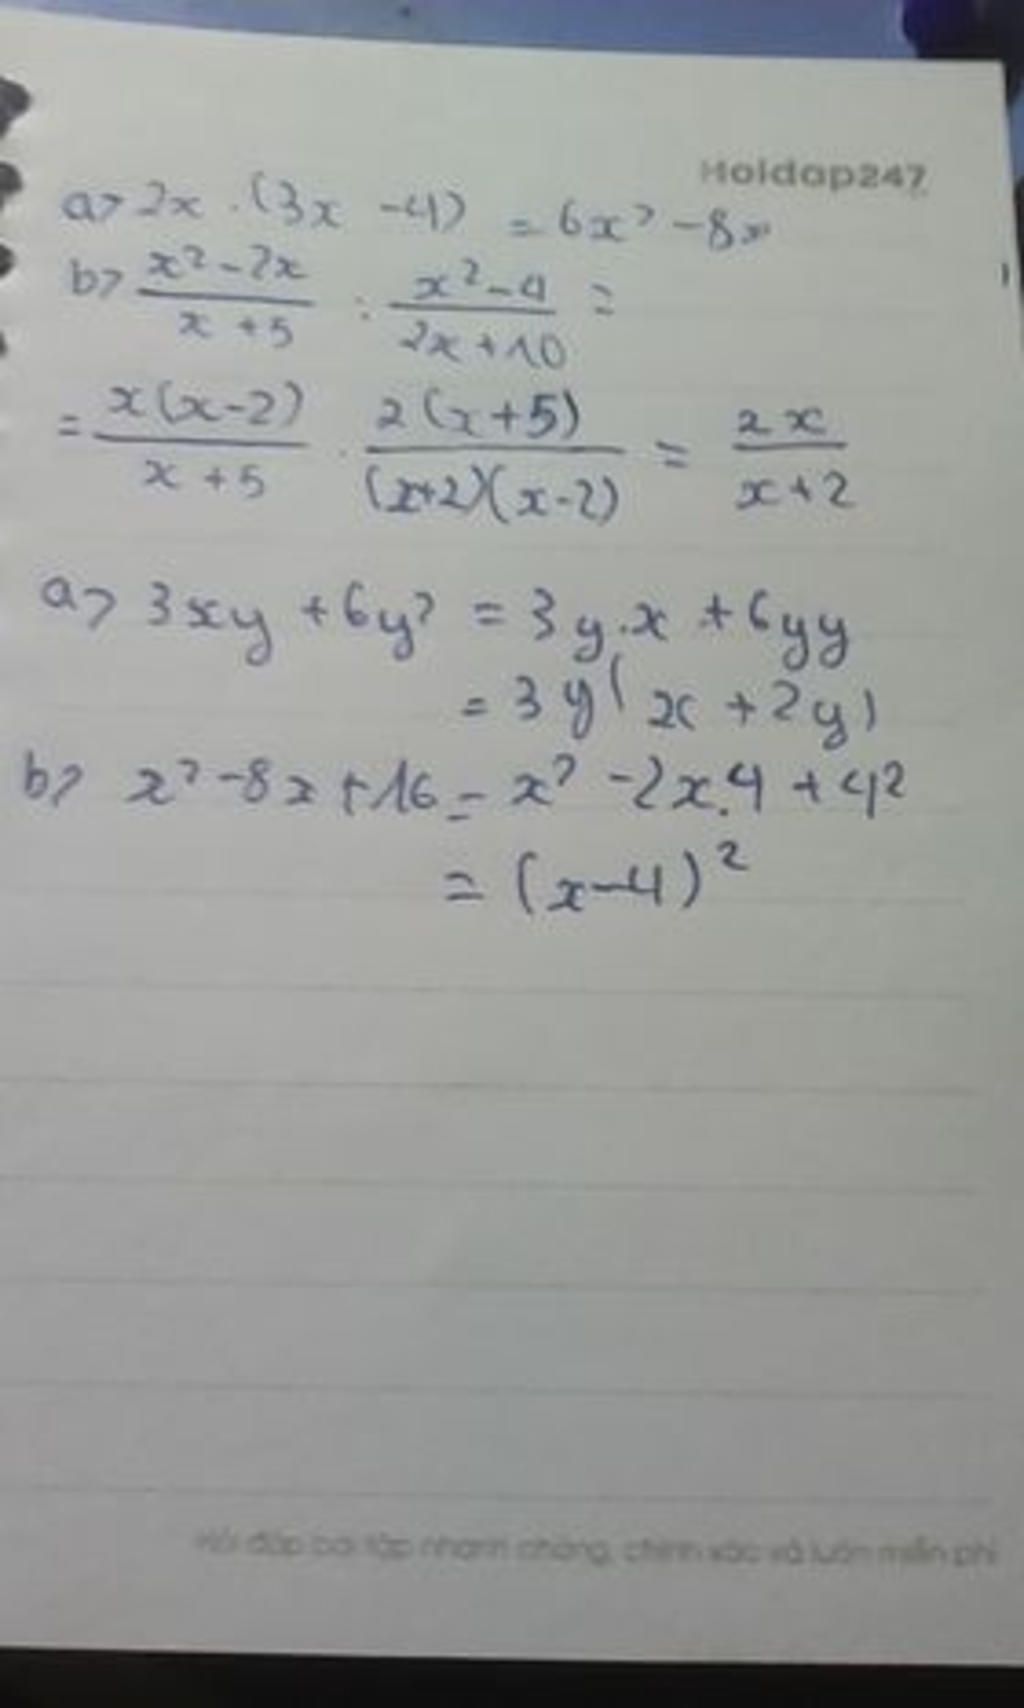 Hoidap247
a> 2x . (3x - 4) = 6x² - 8x
b> \frac{x² - 2x}{x + 5} : \frac{x² - 4}{2x + 10} =
= \frac{x(x - 2)}{x + 5} . \frac{2(x + 5)}{(x+2)(x - 2)} = \frac{2x}{x + 2}
a> 3xy + 6y² = 3y.x + 6yy
= 3y(x + 2y)
b> x² - 8x + 16 = x² - 2x.4 + 4²
= (x - 4)²
Hỏi đáp bài tập nhanh chóng, chính xác và luôn miễn phí